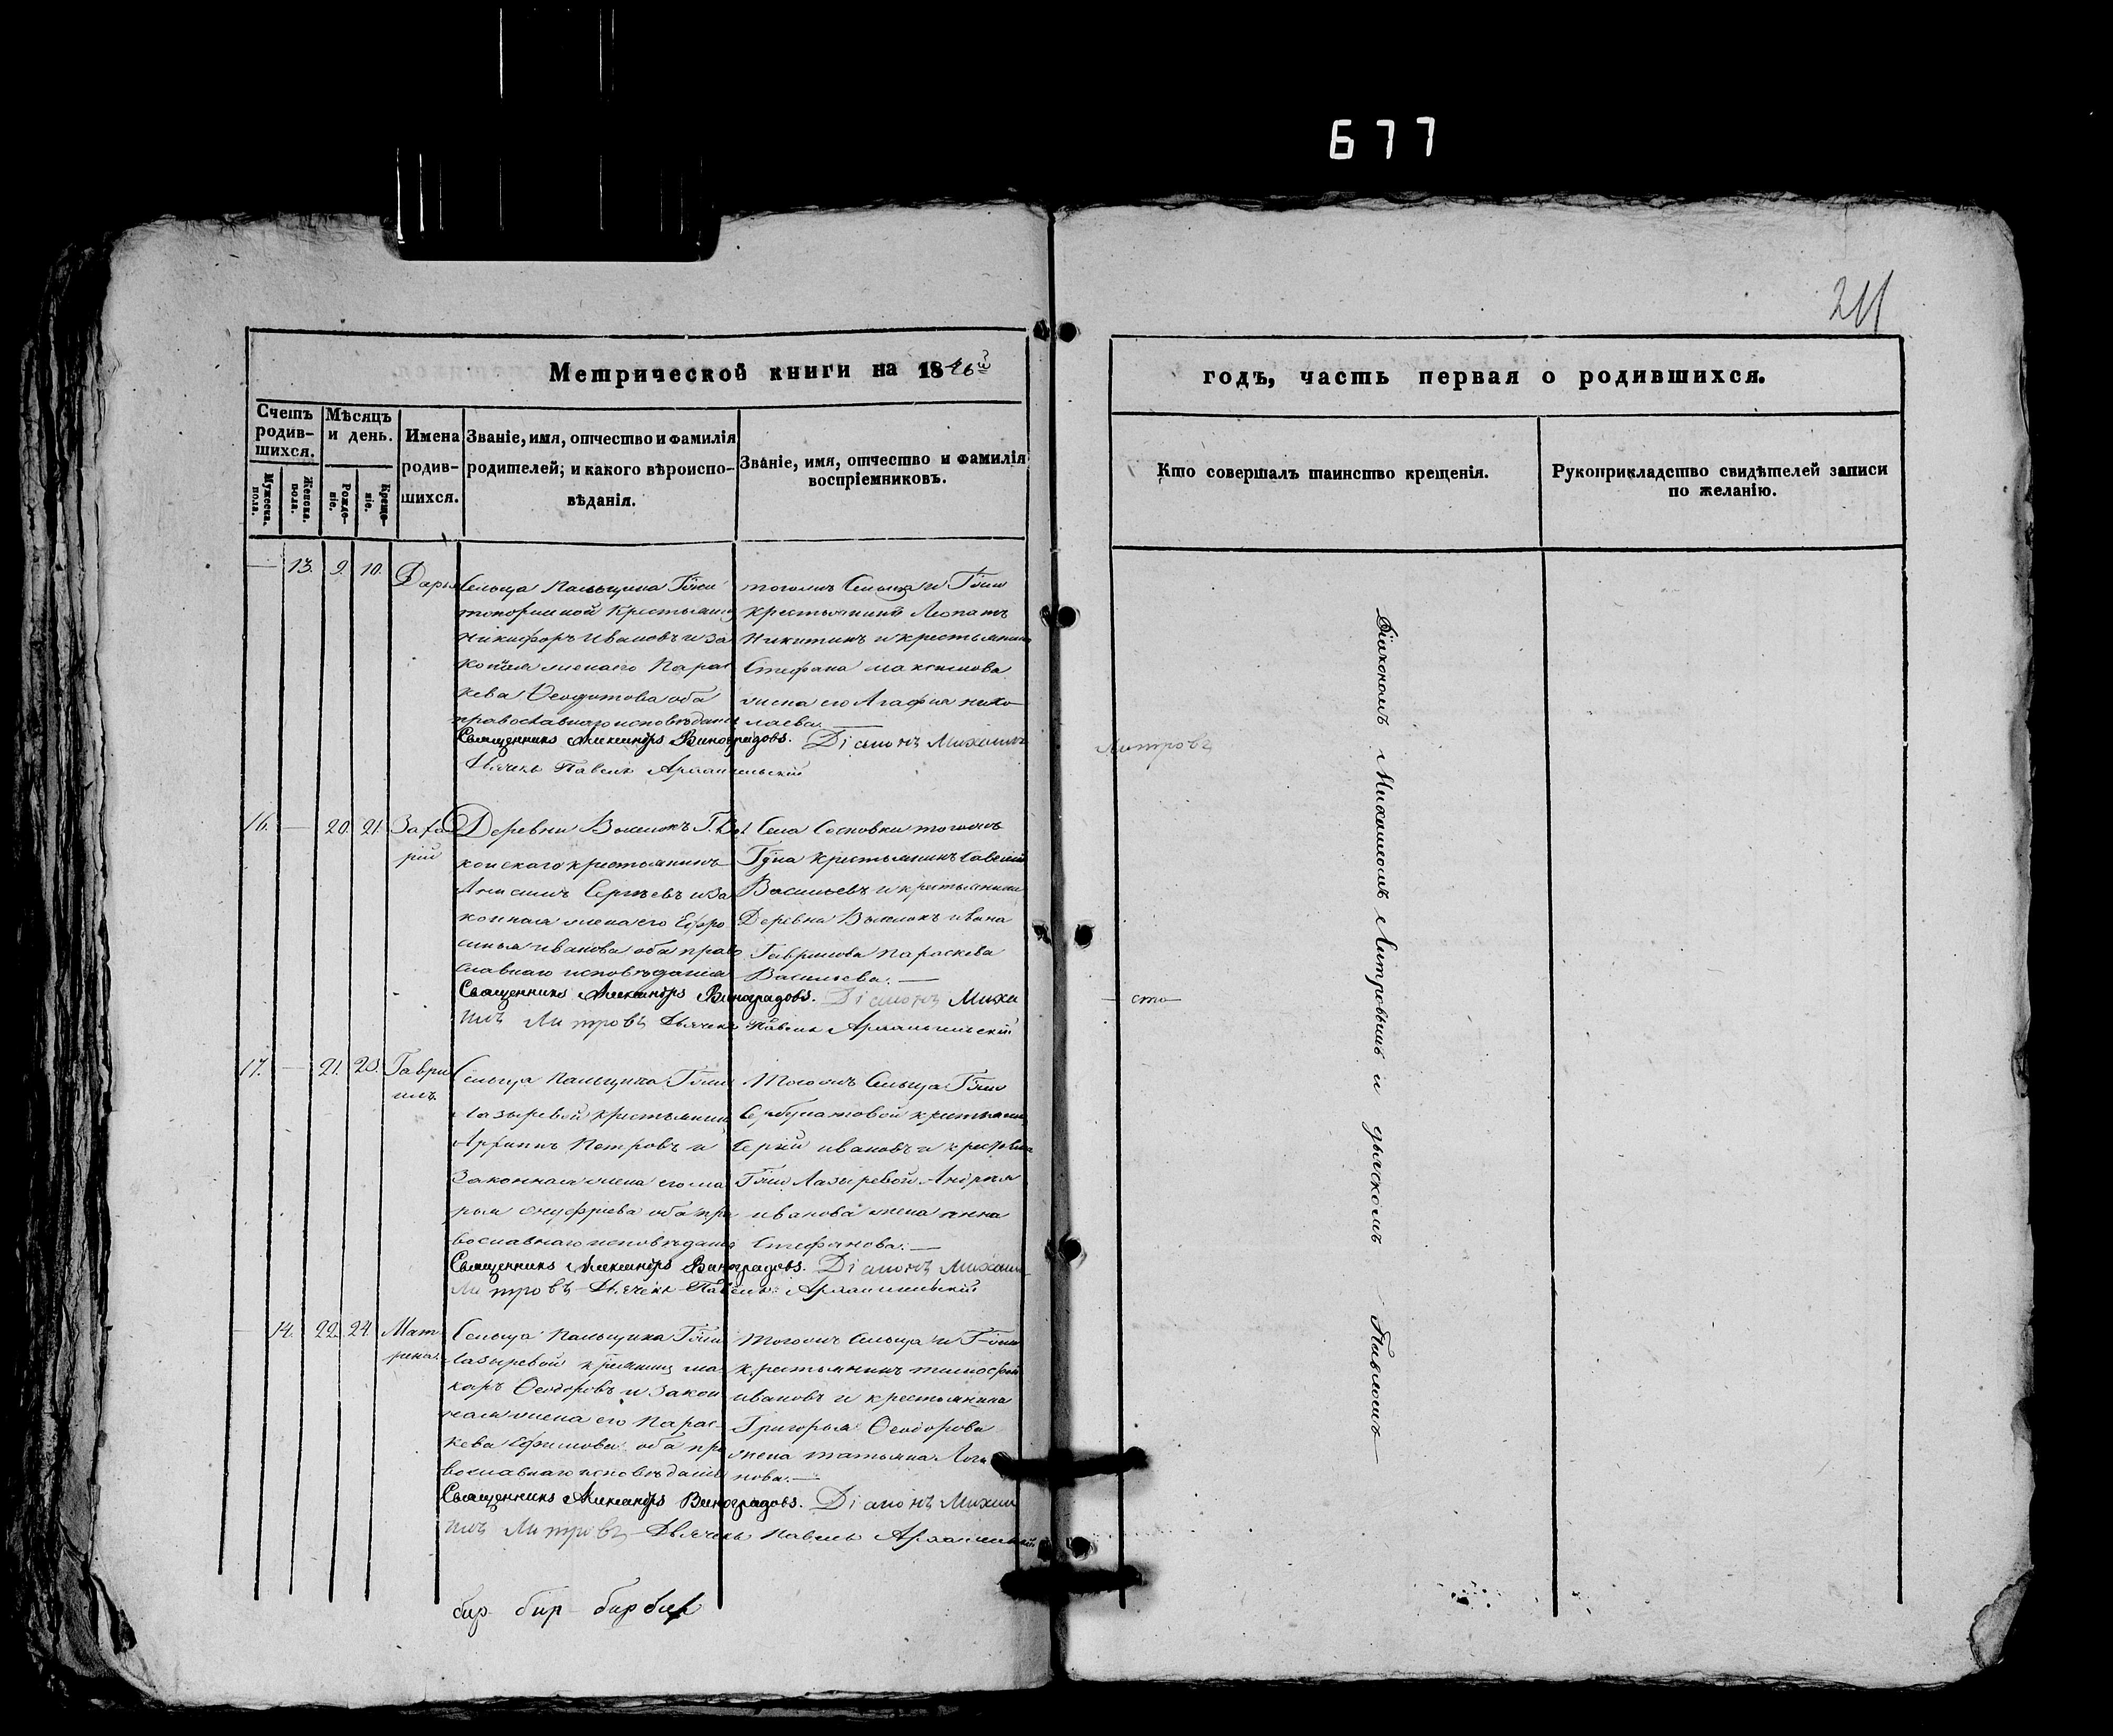 677
211
Метрической книги на 18
годъ, часть первая о родившихся.
Счетъ родив-шихся.
Мѣсяцъ и день.
Имена родив-шихся.
Званіе, имя, отчество и фамилія родителей; и какого вѣроиспо-вѣданія.
Званіе, имя, отчество и фамилія воспріемниковъ.
Мужеска. пола.
Женска. пола.
Рожде-ніе.
Креще-ніе.
Кто совершалъ таинство крещенія.
Рукоприкладство свидѣтелей записи по желанію.
13. 9. 10. Дарья
Сельца Пальщина Гжи
крестьянин
Никифоръ Ивановъ и за
конная жена его Парас
кева Ѳеодотова оба
православнаго исповѣданія
тогожъ Сельца и Гжи
крестьянинъ
Никитинъ и крестьянина
Стефана Максимова
жена его Агафия Нико
лаева.
Священникъ Александръ Виноградовъ. Діаконъ Михаилъ
Литровъ
Дьячекъ Павелъ Архангельскій
16. — 20. 21. Заха
рій
Деревни Г.
крестьянинъ
Анисимъ Сергѣевъ и за
конная жена его Ефро
синья Иванова оба право
славнаго исповѣданія
Села Сосновки тогожъ
Гдна крестьянинъ Савелій
Васильевъ и крестьянина
Деревни Ивана
Гаврилова Параскева
Васильева. —
Священникъ Александръ Виноградовъ. Діаконъ Миха
илъ Литровъ Дьячекъ Павелъ Архангельскій
17. — 21. 23. Гаври
илъ
Сельца Пальщина Гжи
Лазыревой крестьянин
Архипъ Петровъ и
законная жена его Ма
рья Онуфріева оба пра
вославнаго исповѣданія
Тогожъ Сельца Гжи
крестьянин
Сергій Ивановъ и
Гжи Лазыревой Андрея
Иванова жена Анна
Стефанова. —
Священникъ Александръ Виноградовъ. Діаконъ Михаилъ
Литровъ Дьячекъ Павелъ Архангельскій
— 14. 22. 24. Мат
рена.
Сельца Пальщина Гжи
Лазыревой Ма
каръ Ѳеодоровъ и закон
ная жена его Парас
кева Ефимова оба пра
вославнаго исповѣданія
Тогожъ Сельца и Гжи
крестьянинъ Тимофей
Ивановъ и крестьянина
Григорья Ѳеодорова
жена Татьяна Логи
нова. —
Священникъ Александръ Виноградовъ. Діаконъ Михаи
илъ Литровъ Дьячекъ Павелъ Архангельскій
Діакономъ Михаиломъ Литровымъ и дьячкомъ Павломъ